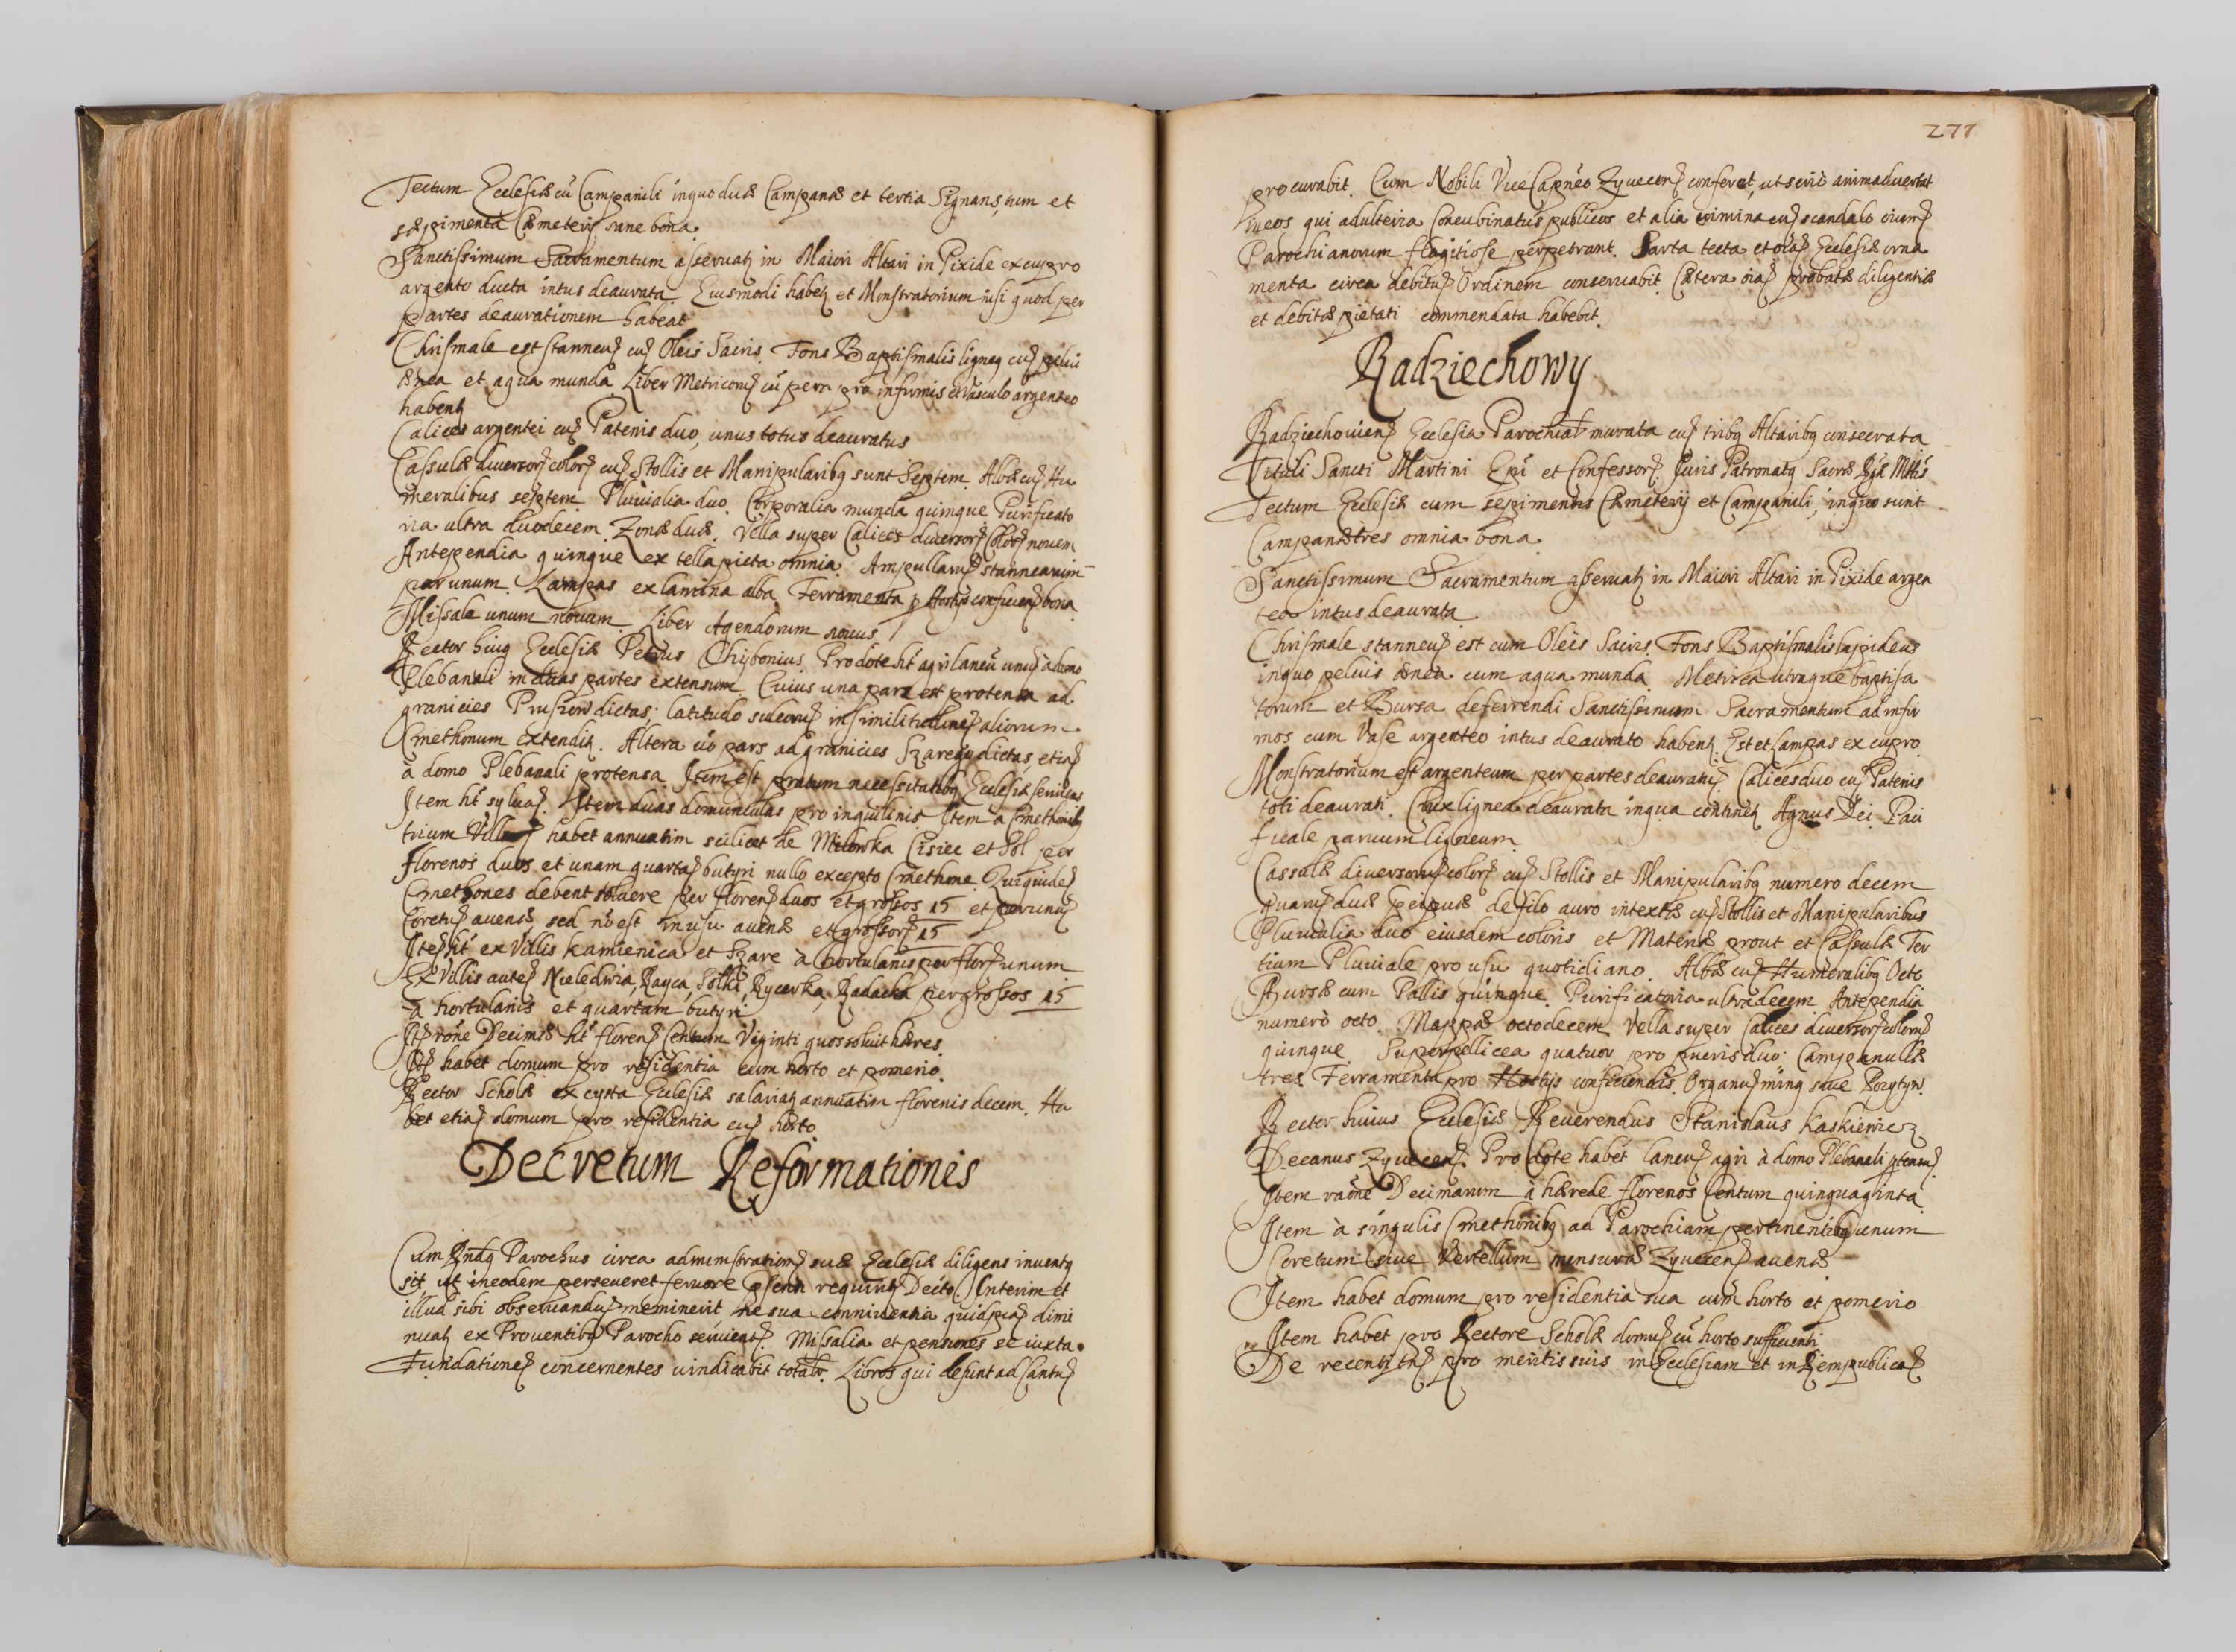 Tectum Ecclesiæ cũ Campanili in quo duæ Campanæ et tertia Signans, tum et
sæpimenta Cæmeterij sane bona.
Sanctissimum Sacramentum asseruatꝫ in Maiori Altari in Pixide ex cupro
argento ducta intus deaurata. Eiusmodi habetꝫ et Monstratorium nisi quod per
partes deaurationem habeat
Chrismale est stanneũ cũ Oleis Sacris. Fons Baptismalis ligneꝰ cũ pelui
ænea et aqua munda Liber Metricorũ cũ pera pro infirmis et vasculo argenteo
habentꝫ
Calices argentei cũ Patenis duo, unus totus deauratus
Casulæ diuersorũ colorũ cũ Stollis et Manipularibꝫ sunt Septem Albæ cũ Hu
meralibus septem Pluuialia duo. Corporalia munda quinque Purificato
ria ultra duodecem. Zonæ duæ. Vella super Calices diuersorũ Colorũ nouem
Antependia quinque ex tella picta omnia. Ampullarũ stannearum
par unum. Lampas ex lamina alba Ferramenta ꝓ Hostijs conficiendis bona
Missale unum nouum. Liber Agendorum nouus
Rector huiꝰ Ecclesiæ Petrus Chybonius. Pro dote ht̃ agri laneũ unũ à domo
Plebanali in duas partes extensum. Cuius una pars est protensa ad
granicies Prusiow dictas; latitudo sulcorũ in similitudinem aliorum
Cmethonum extenditꝫ. Altera ũo pars ad granicies Szaregu dictas etiã
à domo Plebanali protensa Item est pratum necessitatibꝫ Ecclesiæ seruiens
Item ht̃ syluam. Item duas domunculas pro inquilinis Item a Cmethonibꝫ
trium Villarũ habet annuatim scilicet de Milowka Cisiec et Sol per
florenos duos et unam quartã butyri nullo excepto Cmethone. Qui quidẽ
Cmethones debent soluere per florenos duos et grossos 15 et per unũ
Coretũ auenæ sed nõ est in usu auenæ et grossorũ 15
Itẽ ht̃ ex Villis Kamienica et Szare à hortulanis per flor: unum
Ex Villis autẽ Nieledwia, Rayca, Solki, Rycerka, Radecka per grossos 15
à hortulanis et quartam butyri
Itẽ rõne Decimæ ht̃ floren: Centum Viginti quos soluit hæres.
Itẽ habet domum pro residentia cum horto et pomerio.
Rector Scholæ ex cysta Ecclesiæ salariatꝫ annuatim florenis decem. Ha
bet etiã domum pro residentia cũ horto.
Decretum Reformationis
Cum Rndꝰ Parochus circa administrationẽ suæ Ecclesiæ diligens inuentꝰ
sit ut in eodem perseueret feruore pñti requiritꝫ Decto. Interim et
illud sibi obseruandũ meminerit, ne sua conniuentia quidpiã dimi
nuatꝫ ex Prouentibꝫ Parocho seruient: Missalia et pensiones se iuxta
Fundationẽ concernentes uindicabit totalr̃. Libros qui desunt ad Cantũ
277
procurabit. Cum Nobili Vice Capneo Zyuecenẽ conferet, ut seriò animaduertat
in eos qui adulteria Concubinatus publicos et alia crimina cũ scandalo aliorũ
Parochianorum flagitiose perpetrant. Sarta tecta et oĩa Ecclesiæ orna
menta circa debitũ Ordinem conseruabit Cætera oĩa probatæ diligentiæ
et debitæ pietati commendata habebit.
Radziechowy
Radziechouien: Ecclesia Parochial: murata cũ tribꝫ Altaribꝫ consecrata
Tituli Sancti Martini Epĩ et Confessorꝭ Iuris Patronatꝰ Sacræ Rgæ Mttis
Tectum Ecclesiæ cum sepimentis Cæmeterij et Campanili, in quo sunt
Campanæ tres omnia bona.
Sanctissimum Sacramentum asseruatꝫ in Maiori Altari in Pixide argen
tea intus deaurata
Chrismale stanneũ est cum Oleis Sacris. Fons Baptismalis lapideus
in quo peluis ænea cum aqua munda. Metrica utraque baptisa
torum et Bursa deferrendi Sanctissimum Sacramentum ad infir
mos cum Vase argenteo intus deaurato habentꝫ. Est et Lampas ex cupro
Monstratorium est argenteum per partes deauratũ. Calices duo cũ Patenis
toti deaurati. Crux lignea deaurata in qua continetꝫ Agnus Dei. Paci
ficale paruum ligneum
Cassulæ diuersorũ colorũ cũ Stollis et Manipularibꝫ numero decem
quarũ duæ de filo auro intextæ cũ Stollis et Manipularibus
Pluuialia duo eiusdem coloris et Materiæ prout et Casulæ Ter
tium Pluuiale pro usu quotidiano. Albæ cũ Humeralibꝫ Octo
Bursæ cum Pallis quinque. Purificatoria ultra decem Antependia
numero octo. Mappæ octodecem Vella super Calices diuersorũ colorũ
quinque. Superpellicea quatuor pro pueris duo. Campanulæ
tres Ferramenta pro Hostijs conficiendis. Organũ minꝰ siue Pozytyw.
Rector huius Ecclesiæ Reuerendus Stanislaus Kaskiewicz
Decanus Zyuecen: Pro dote habet laneũ agri à domo Plebanali ꝓtensũ
Item raõne Decimarum à hærede florenos Centum quinquaginta
Item à singulis Cmethonibꝫ ad Parochiam pertinentibꝫ unum
Coretum siue Vertellum mensuræ Zyuecen: auenæ
Item habet domum pro residentia sua cum horto et pomerio
Item habet pro Rectore Scholæ domũ cũ horto sufficienti
De recenti tñ pro meritis suis in Ecclesiam et in Rempublicã